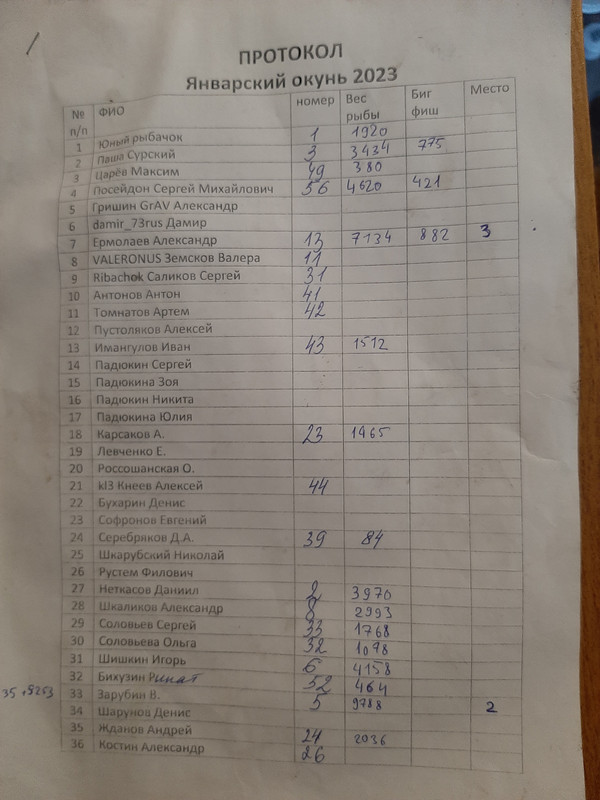 ПРОТОКОЛ
Январский окунь 2023
№ п/п ФИО номер Вес рыбы Биг фиш Место
1 Юный рыбачок 1 1920
2 Паша Сурский 3 3434 775
3 Царёв Максим 49 380
4 Посейдон Сергей Михайлович 56 4620 421
5 Гришин GrAV Александр
6 damir_73rus Дамир
7 Ермолаев Александр 13 7134 882 3
8 VALERONUS Земсков Валера 11
9 Ribachok Саликов Сергей 31
10 Антонов Антон 41
11 Томнатов Артем 42
12 Пустоляков Алексей
13 Имангулов Иван 43 1512
14 Падюкин Сергей
15 Падюкина Зоя
16 Падюкин Никита
17 Падюкина Юлия
18 Карсаков А. 23 1465
19 Левченко Е.
20 Россошанская О.
21 kl3 Кнеев Алексей 44
22 Бухарин Денис
23 Софронов Евгений
24 Серебряков Д.А. 39 84
25 Шкарубский Николай
26 Рустем Филович
27 Неткасов Даниил 2 3970
28 Шкаликов Александр 8 2993
29 Соловьев Сергей 33 1768
30 Соловьева Ольга 32 1098
31 Шишкин Игорь 6 4158
32 Бихузин Ринат 52 464
33 Зарубин В. 5 9788 2
34 Шарунов Денис
35 Жданов Андрей 24 2036
36 Костин Александр 26